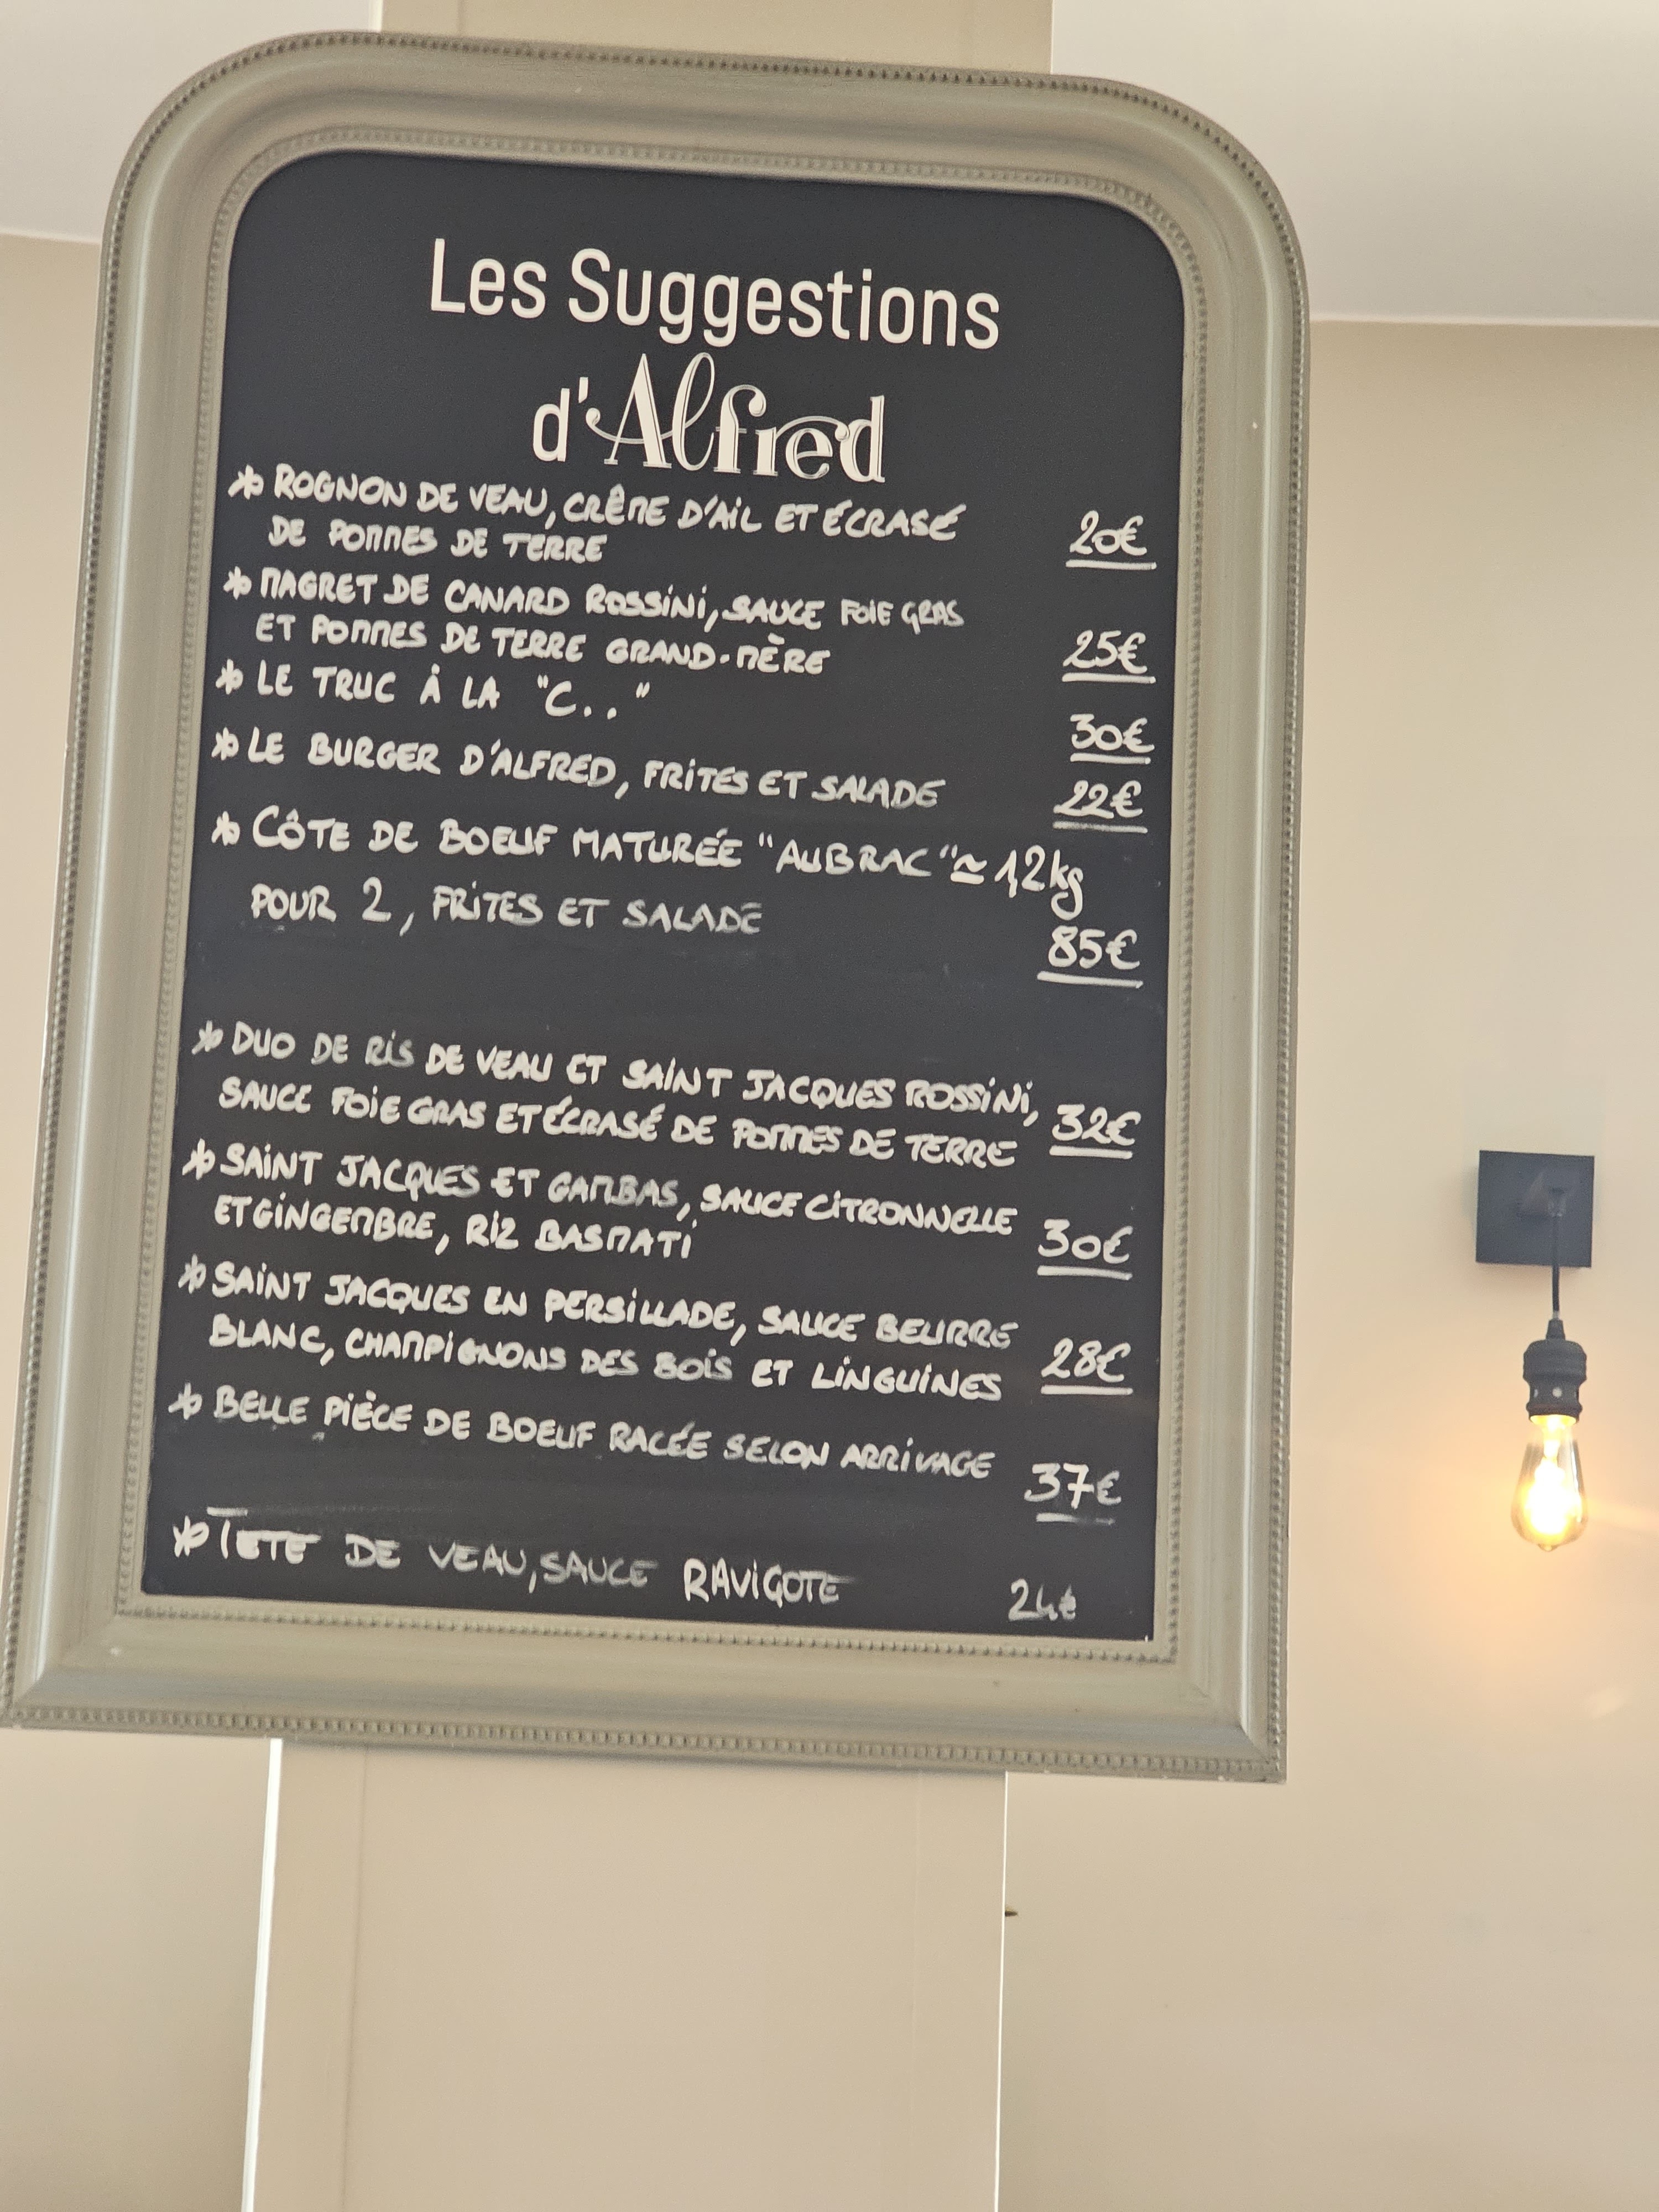 Les Suggestions
d'Alfred
* ROGNON DE VEAU, CRÊME D'AIL ET ÉCRASÉ
DE POMMES DE TERRE 20€
* MAGRET DE CANARD ROSSINI, SAUCE FOIE GRAS
ET POMMES DE TERRE GRAND-MÈRE 25€
* LE TRUC À LA "C.." 30€
* LE BURGER D'ALFRED, FRITES ET SALADE 22€
* CÔTE DE BOEUF MATURÉE "AUBRAC" ≃ 1,2kg
POUR 2, FRITES ET SALADE 85€
* DUO DE RIS DE VEAU ET SAINT JACQUES ROSSINI,
SAUCE FOIE GRAS ET ÉCRASÉ DE POMMES DE TERRE 32€
* SAINT JACQUES ET GAMBAS, SAUCE CITRONNELLE
ET GINGEMBRE, RIZ BASMATI 30€
* SAINT JACQUES EN PERSILLADE, SAUCE BEURRE
BLANC, CHAMPIGNONS DES BOIS ET LINGUINES 28€
* BELLE PIÈCE DE BOEUF RACÉE SELON ARRIVAGE 37€
* TETE DE VEAU, SAUCE RAVIGOTE 24€